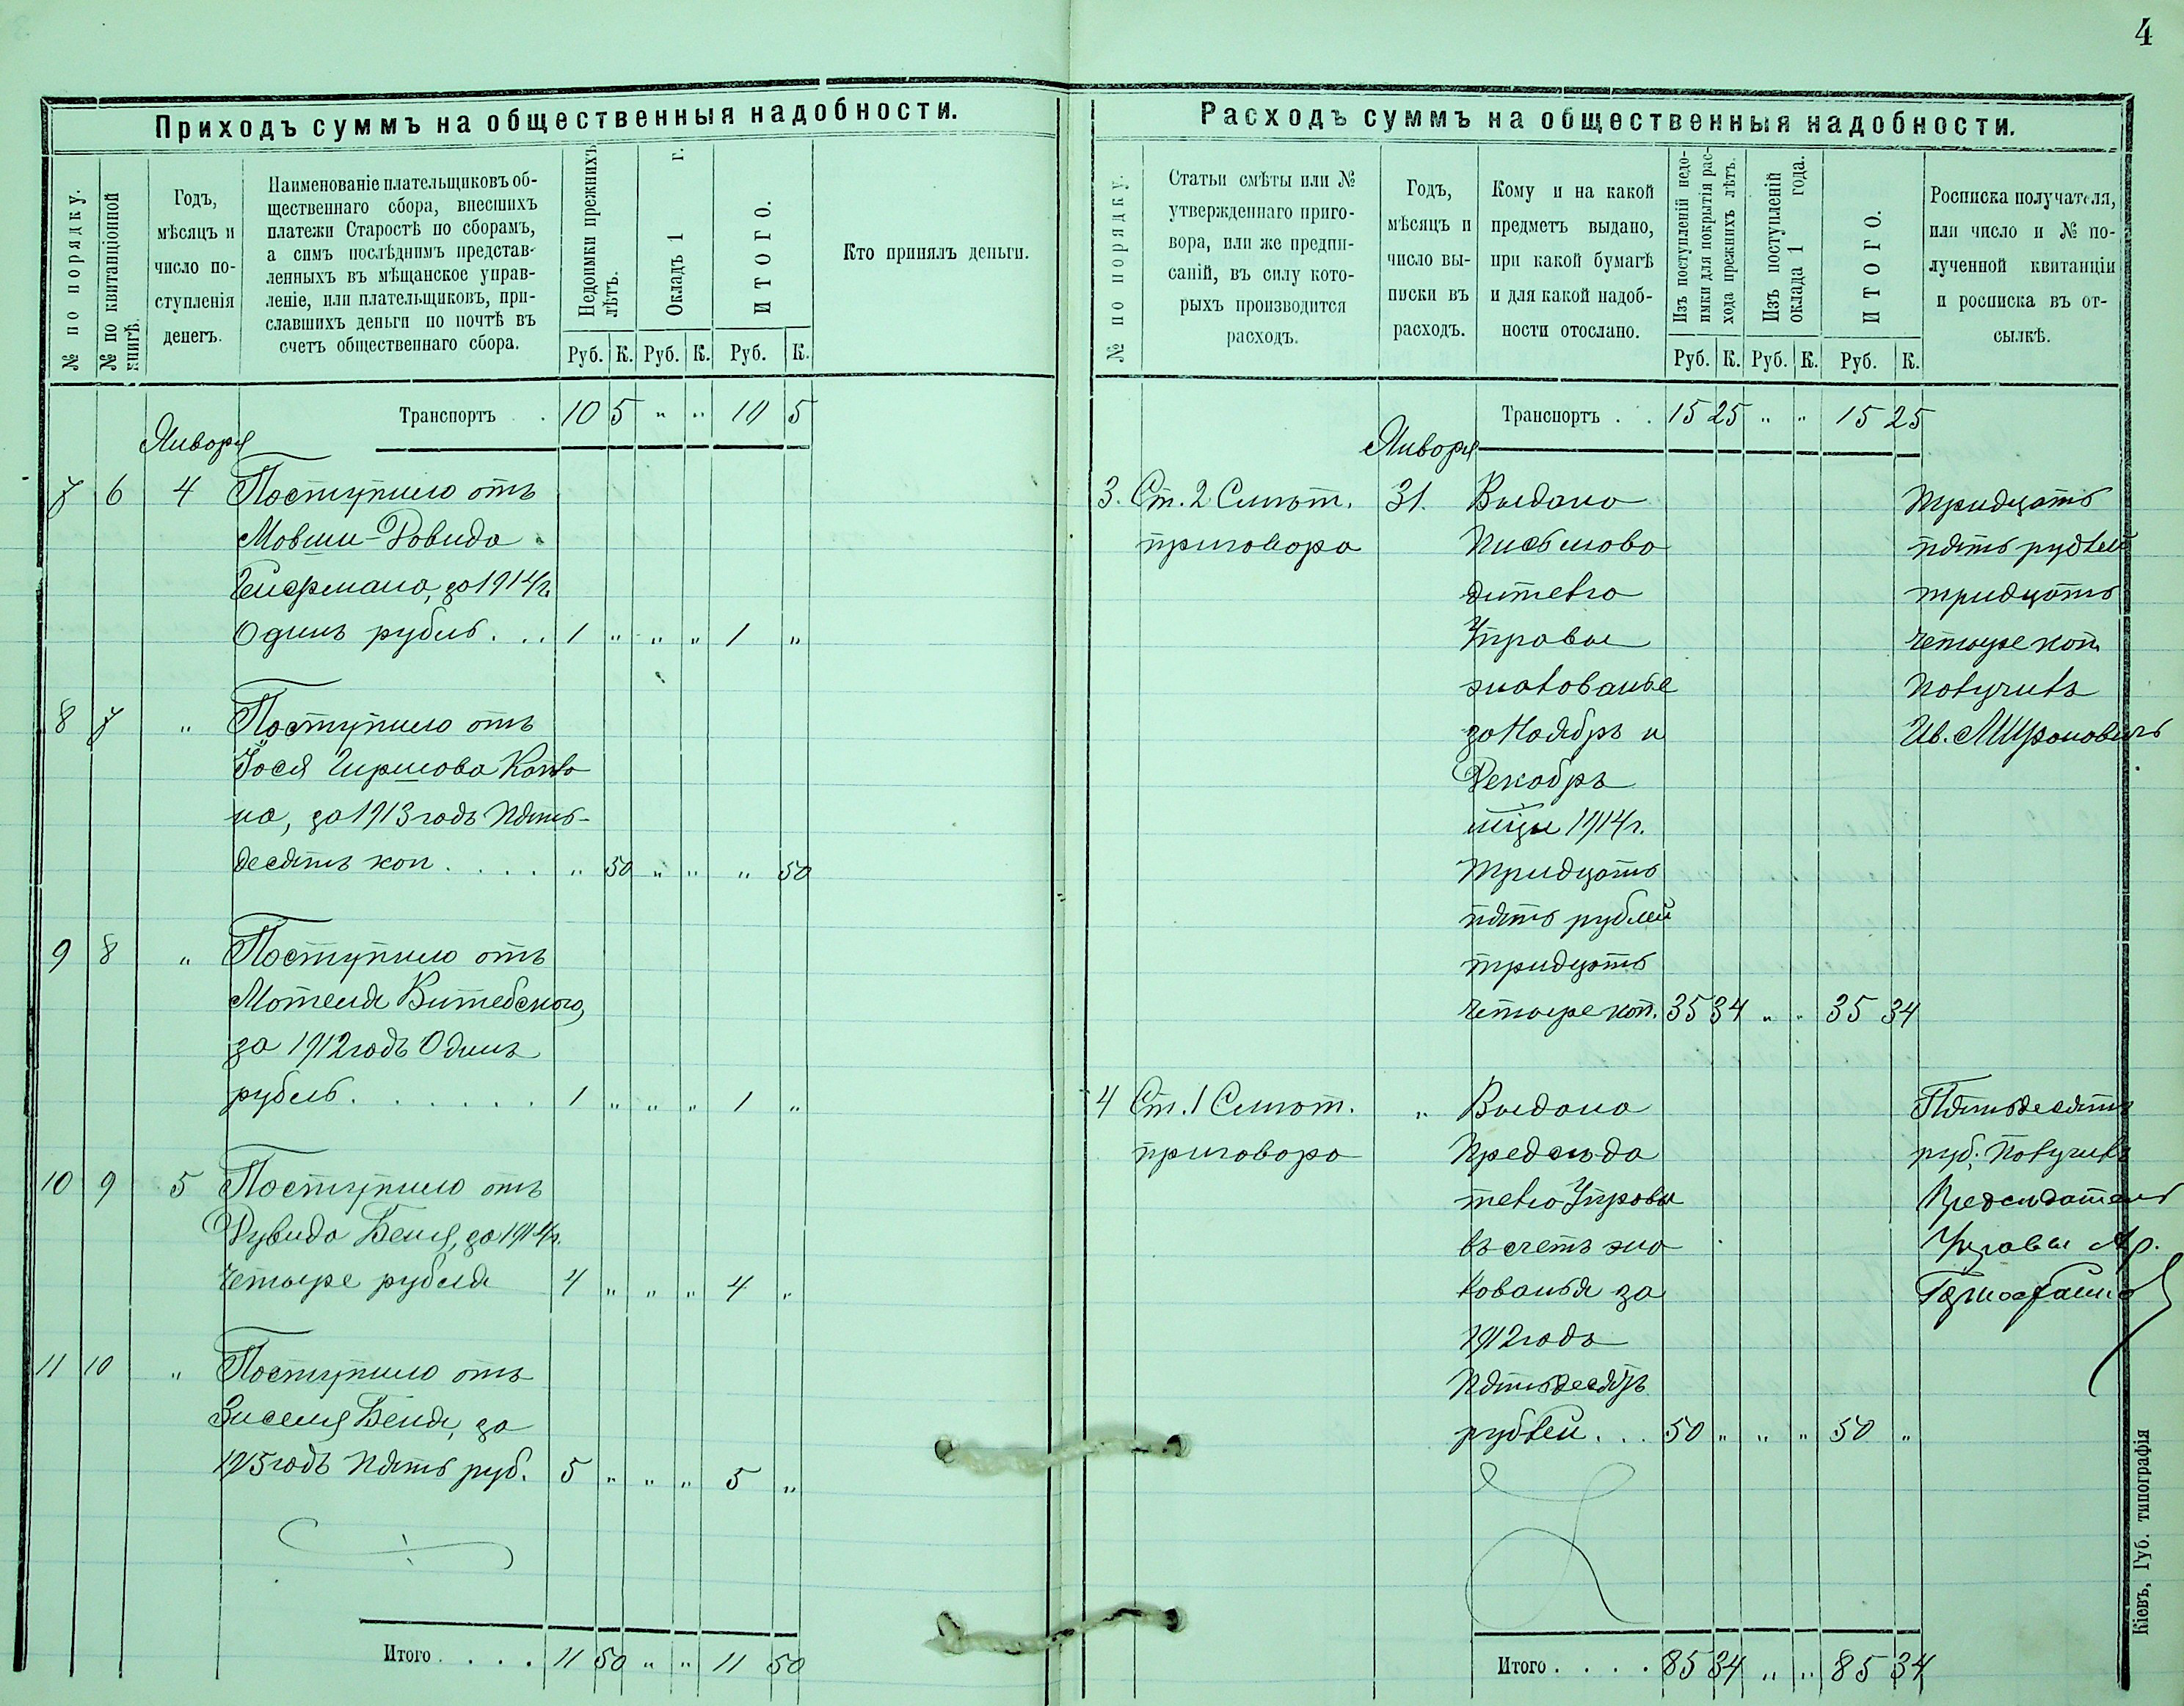 4
Приходъ суммъ на общественныя надобности.
№ по порядку.
№ по квитанціонной книгѣ.
Годъ,
мѣсяцъ и
число по-
ступленія
денегъ.
Наименованіе плательщиковъ об-
щественнаго сбора, внесшихъ
платежи Старостѣ по сборамъ,
а симъ послѣднимъ представ-
ленныхъ въ мѣщанское управ-
леніе, или плательщиковъ, при-
славшихъ деньги по почтѣ въ
счетъ общественнаго сбора.
Недоимки прежнихъ
лѣтъ.
Окладъ 1 г.
ИТОГО.
Руб. К. Руб. К. Руб. К.
Кто принялъ деньги.
Транспортъ . . 10 5 " " 10 5
Января
7 6 4 Поступило отъ
Мовши-Довида
за 1914 г.
Одинъ рубль . . . 1 " " " 1 "
8 7 " Поступило отъ
Іося Гиршова
на, за 1913 годъ Пять-
десятъ коп . . . . " 50 " " " 50
9 8 " Поступило отъ
Мотеля Витебского,
за 1912 годъ Одинъ
рубль . . . . . . 1 " " " 1 "
10 9 5 Поступило отъ
Рувида Беня, за 1914 г.
Четыре рубля 4 " " " 4 "
11 10 " Поступило отъ
Зиселя Беня, за
годъ Пять руб. 5 " " " 5 "
Итого . . . . 11 50 " " 11 50
Расходъ суммъ на общественныя надобности.
№ по порядку.
Статьи смѣты или №
утвержденнаго приго-
вора, или же предпи-
саній, въ силу кото-
рыхъ производится
расходъ.
Годъ,
мѣсяцъ и
число вы-
писки въ
расходъ.
Кому и на какой
предметъ выдано,
при какой бумагѣ
и для какой надоб-
ности отослано.
Изъ поступленій недо-
имки для покрытія рас-
хода прежнихъ лѣтъ.
Изъ поступленій
оклада 1 года.
ИТОГО.
Руб. К. Руб. К. Руб. К.
Росписка получателя,
или число и № по-
лученной квитанціи
и росписка въ от-
сылкѣ.
Транспортъ . . 15 25 " " 15 25
Января
3. Ст. 2 Смѣт. 31. Выдано Тридцать
приговора Письмово пять рублей
дителю тридцать
Управы четыре коп.
жалованье получилъ
за Ноябрь и Ив. Мироновичъ
Декабрь
мцы 1914 г.
Тридцать
пять рублей
тридцать
четыре коп. 35 34 " " 35 34
4 Ст. 1 Смѣт. " Выдано Пятьдесятъ
приговора Предсѣда руб. получилъ
телю Управы Предсѣдатель
въ счетъ жа Управы Ар.
лованья за
1912 годъ
Пятьдесятъ
рублей . . . 50 " " " 50 "
Итого . . . . 85 34 " " 85 34
Кіевъ, Губ. типографія